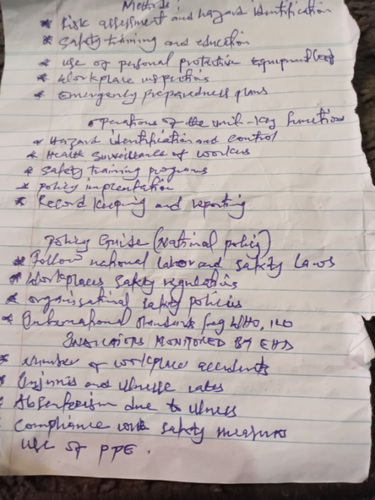 Methods
* Risk assessment and hazard identification
* Safety training and education
* use of personal protective Equipment
* Workplace inspections
* Emergency preparedness plans
operations of the unit-key functions
* Hazard identification and control
* Health surveillance of workers
* Safety training programs
* policy implentation
* Record keeping and reporting
policy Guide (National policy)
* Follow national labor and safety Laws
* Workplaces safety regulations
* organisational safety policies
* International standards WHO, ILO
INDICATORS MONITORED BY EHD
* Number of workplace accidents
* Injuries and illness rates
* Absenteeism due to illness
* Compliance with safety measures
use of PPE.